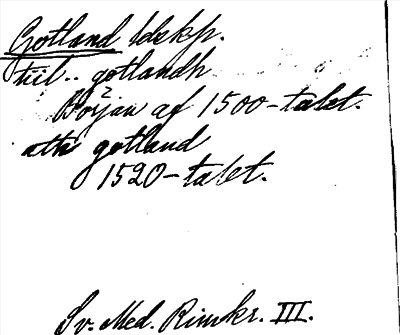 Gotland ldskp.
till .. gotlandh
Början af 1500-talet.
ath gotland
1520-talet.
Sv. Med. Rimkr. III.